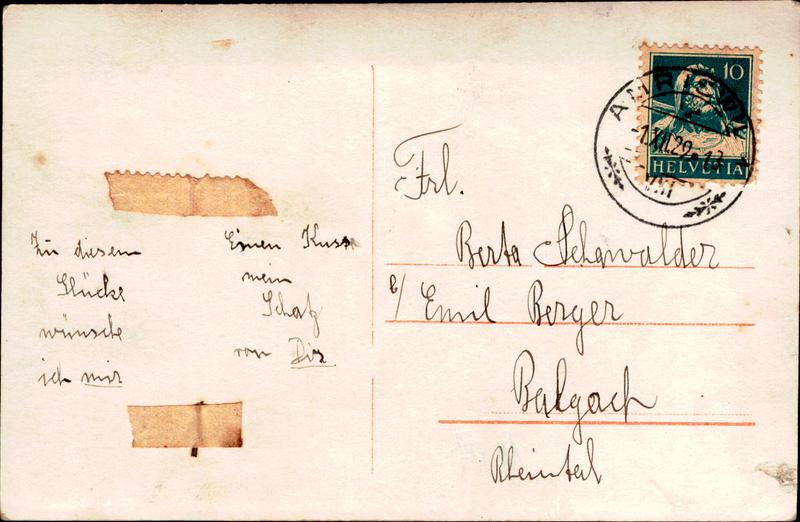 10
AMRISWIL
-1.XII.29.-13
HELVETIA
Frl.
Berta Schawalder
c/ Emil Berger
Balgach
Rheintal
Zu diesem
Glücke
wünsche
ich mir
Einen Kuss
mein
Schatz
von Dir